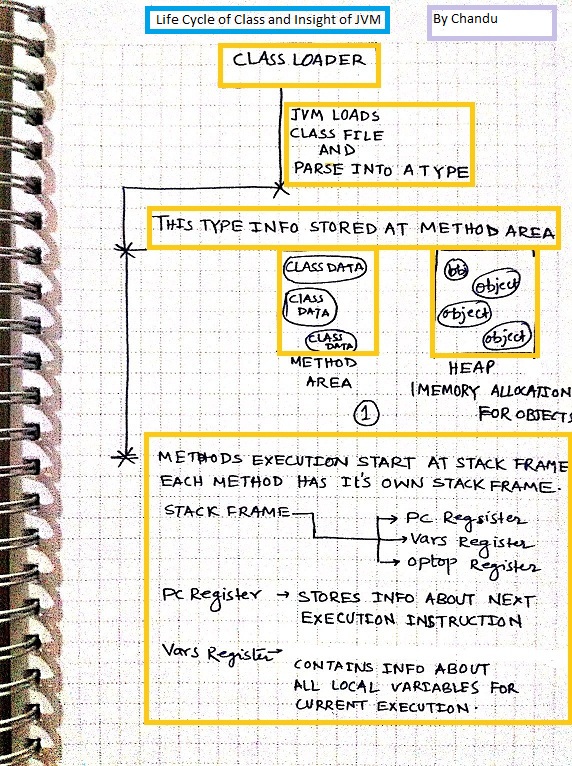 Life Cycle of Class and Insight of JVM
By Chandu
CLASS LOADER
JVM LOADS
CLASS FILE
AND
PARSE INTO A TYPE
THIS TYPE INFO STORED AT METHOD AREA
CLASS DATA
CLASS
DATA
CLASS
DATA
METHOD
AREA
object
object
object
HEAP
MEMORY ALLOCATION
FOR OBJECTS
1
METHODS EXECUTION START AT STACK FRAME
EACH METHOD HAS IT'S OWN STACK FRAME.
STACK FRAME
PC Regsister
Vars Register
optop Register
PC Register → STORES INFO ABOUT NEXT
EXECUTION INSTRUCTION
Vars Register →
CONTAINS INFO ABOUT
ALL LOCAL VARIABLES FOR
CURRENT EXECUTION.